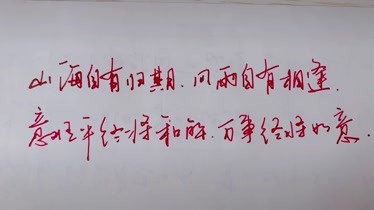 山海自有归期.风雨自有相逢.
意难平终将和解.万事终将如意.